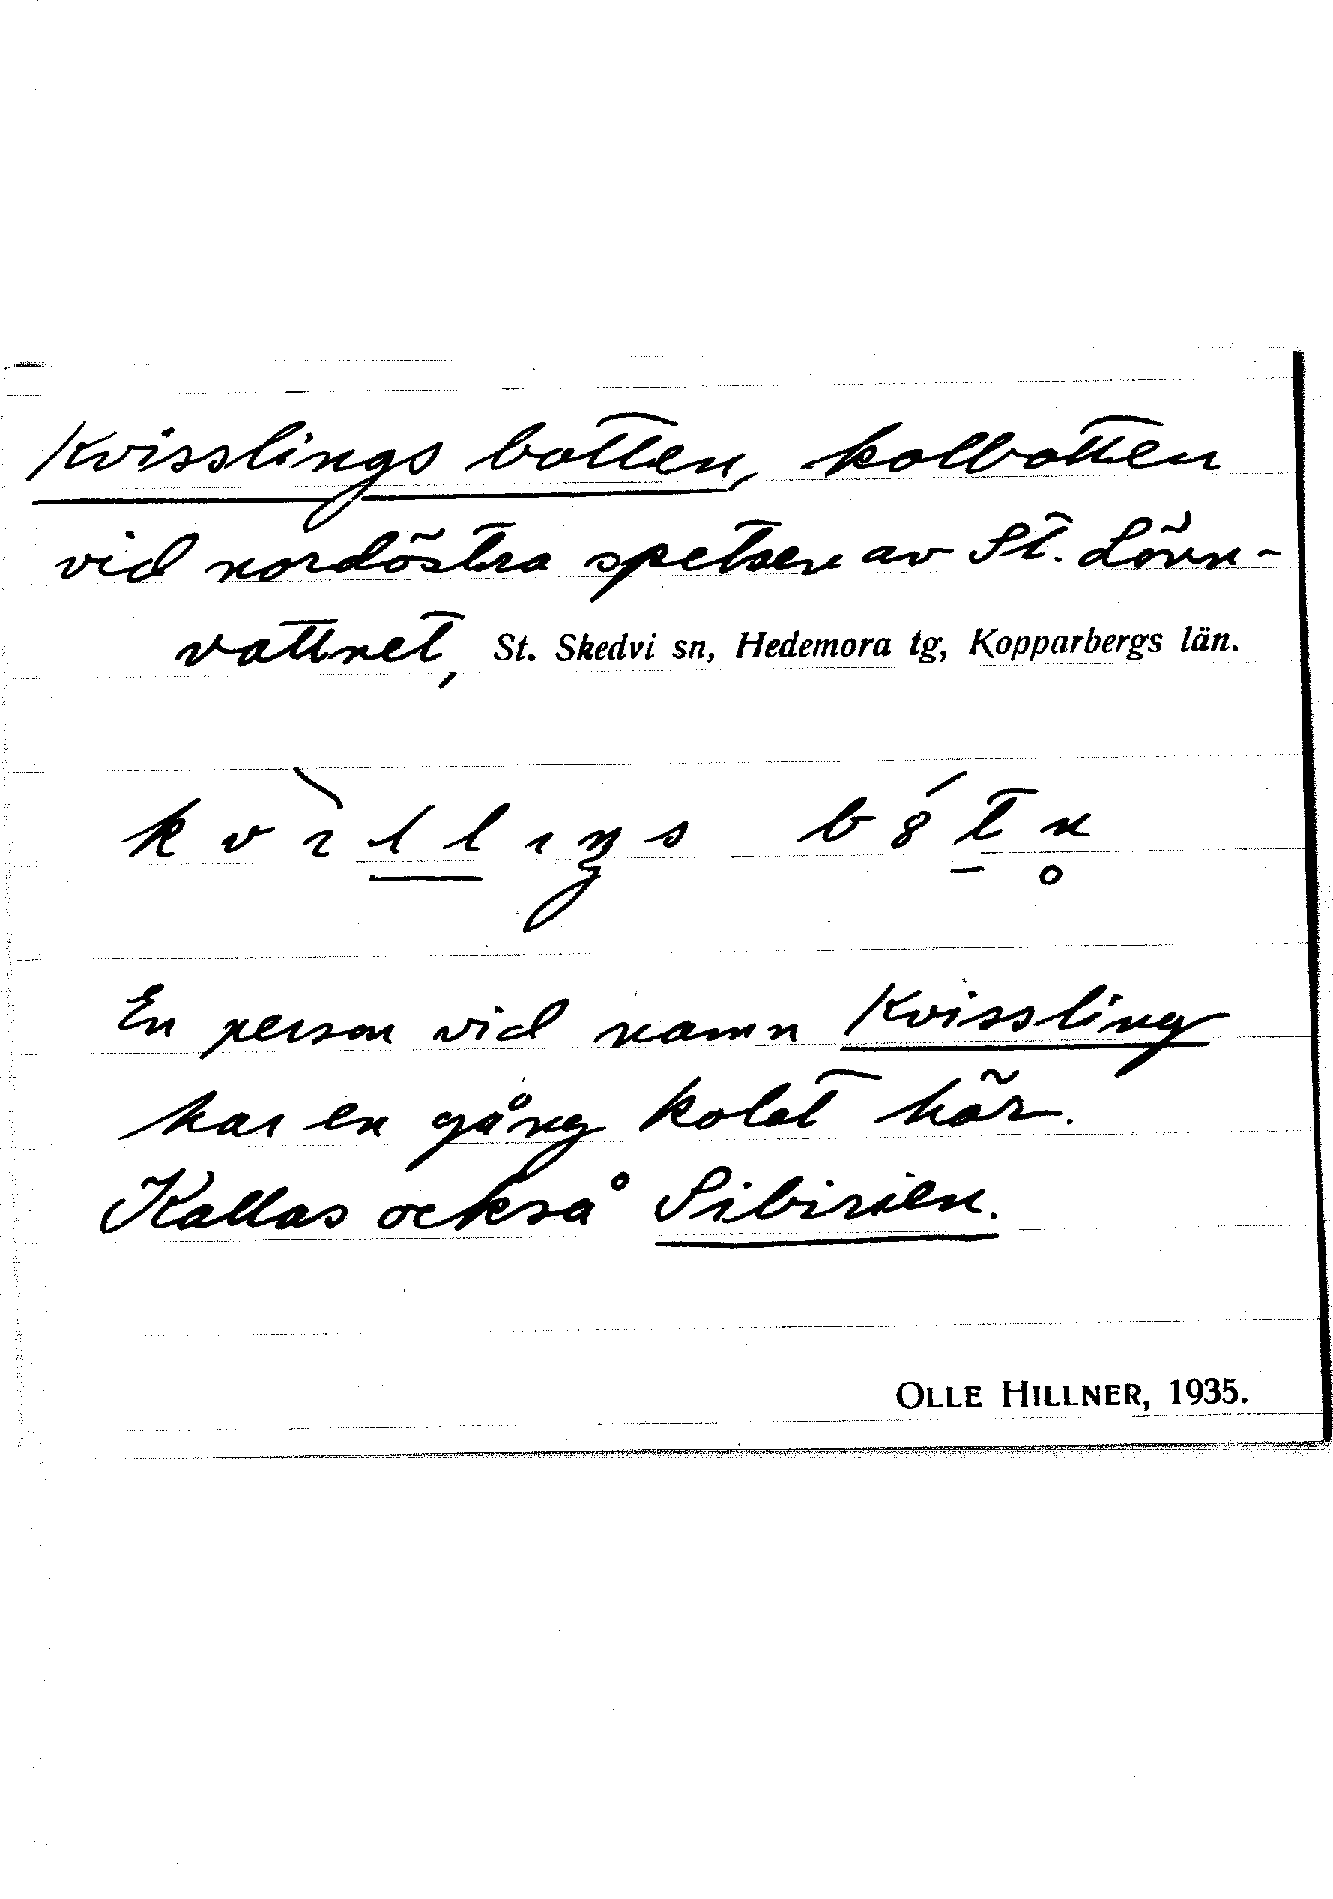 Kvisslings botten, kolbotten
vid nordöstra spetsen av St. Lövn-
vattnet, St. Skedvi sn, Hedemora tg, Kopparbergs län.
En person vid namn Kvissling
har en gång kolat här.
Kallas också Sibirien.
OLLE HILLNER, 1935.